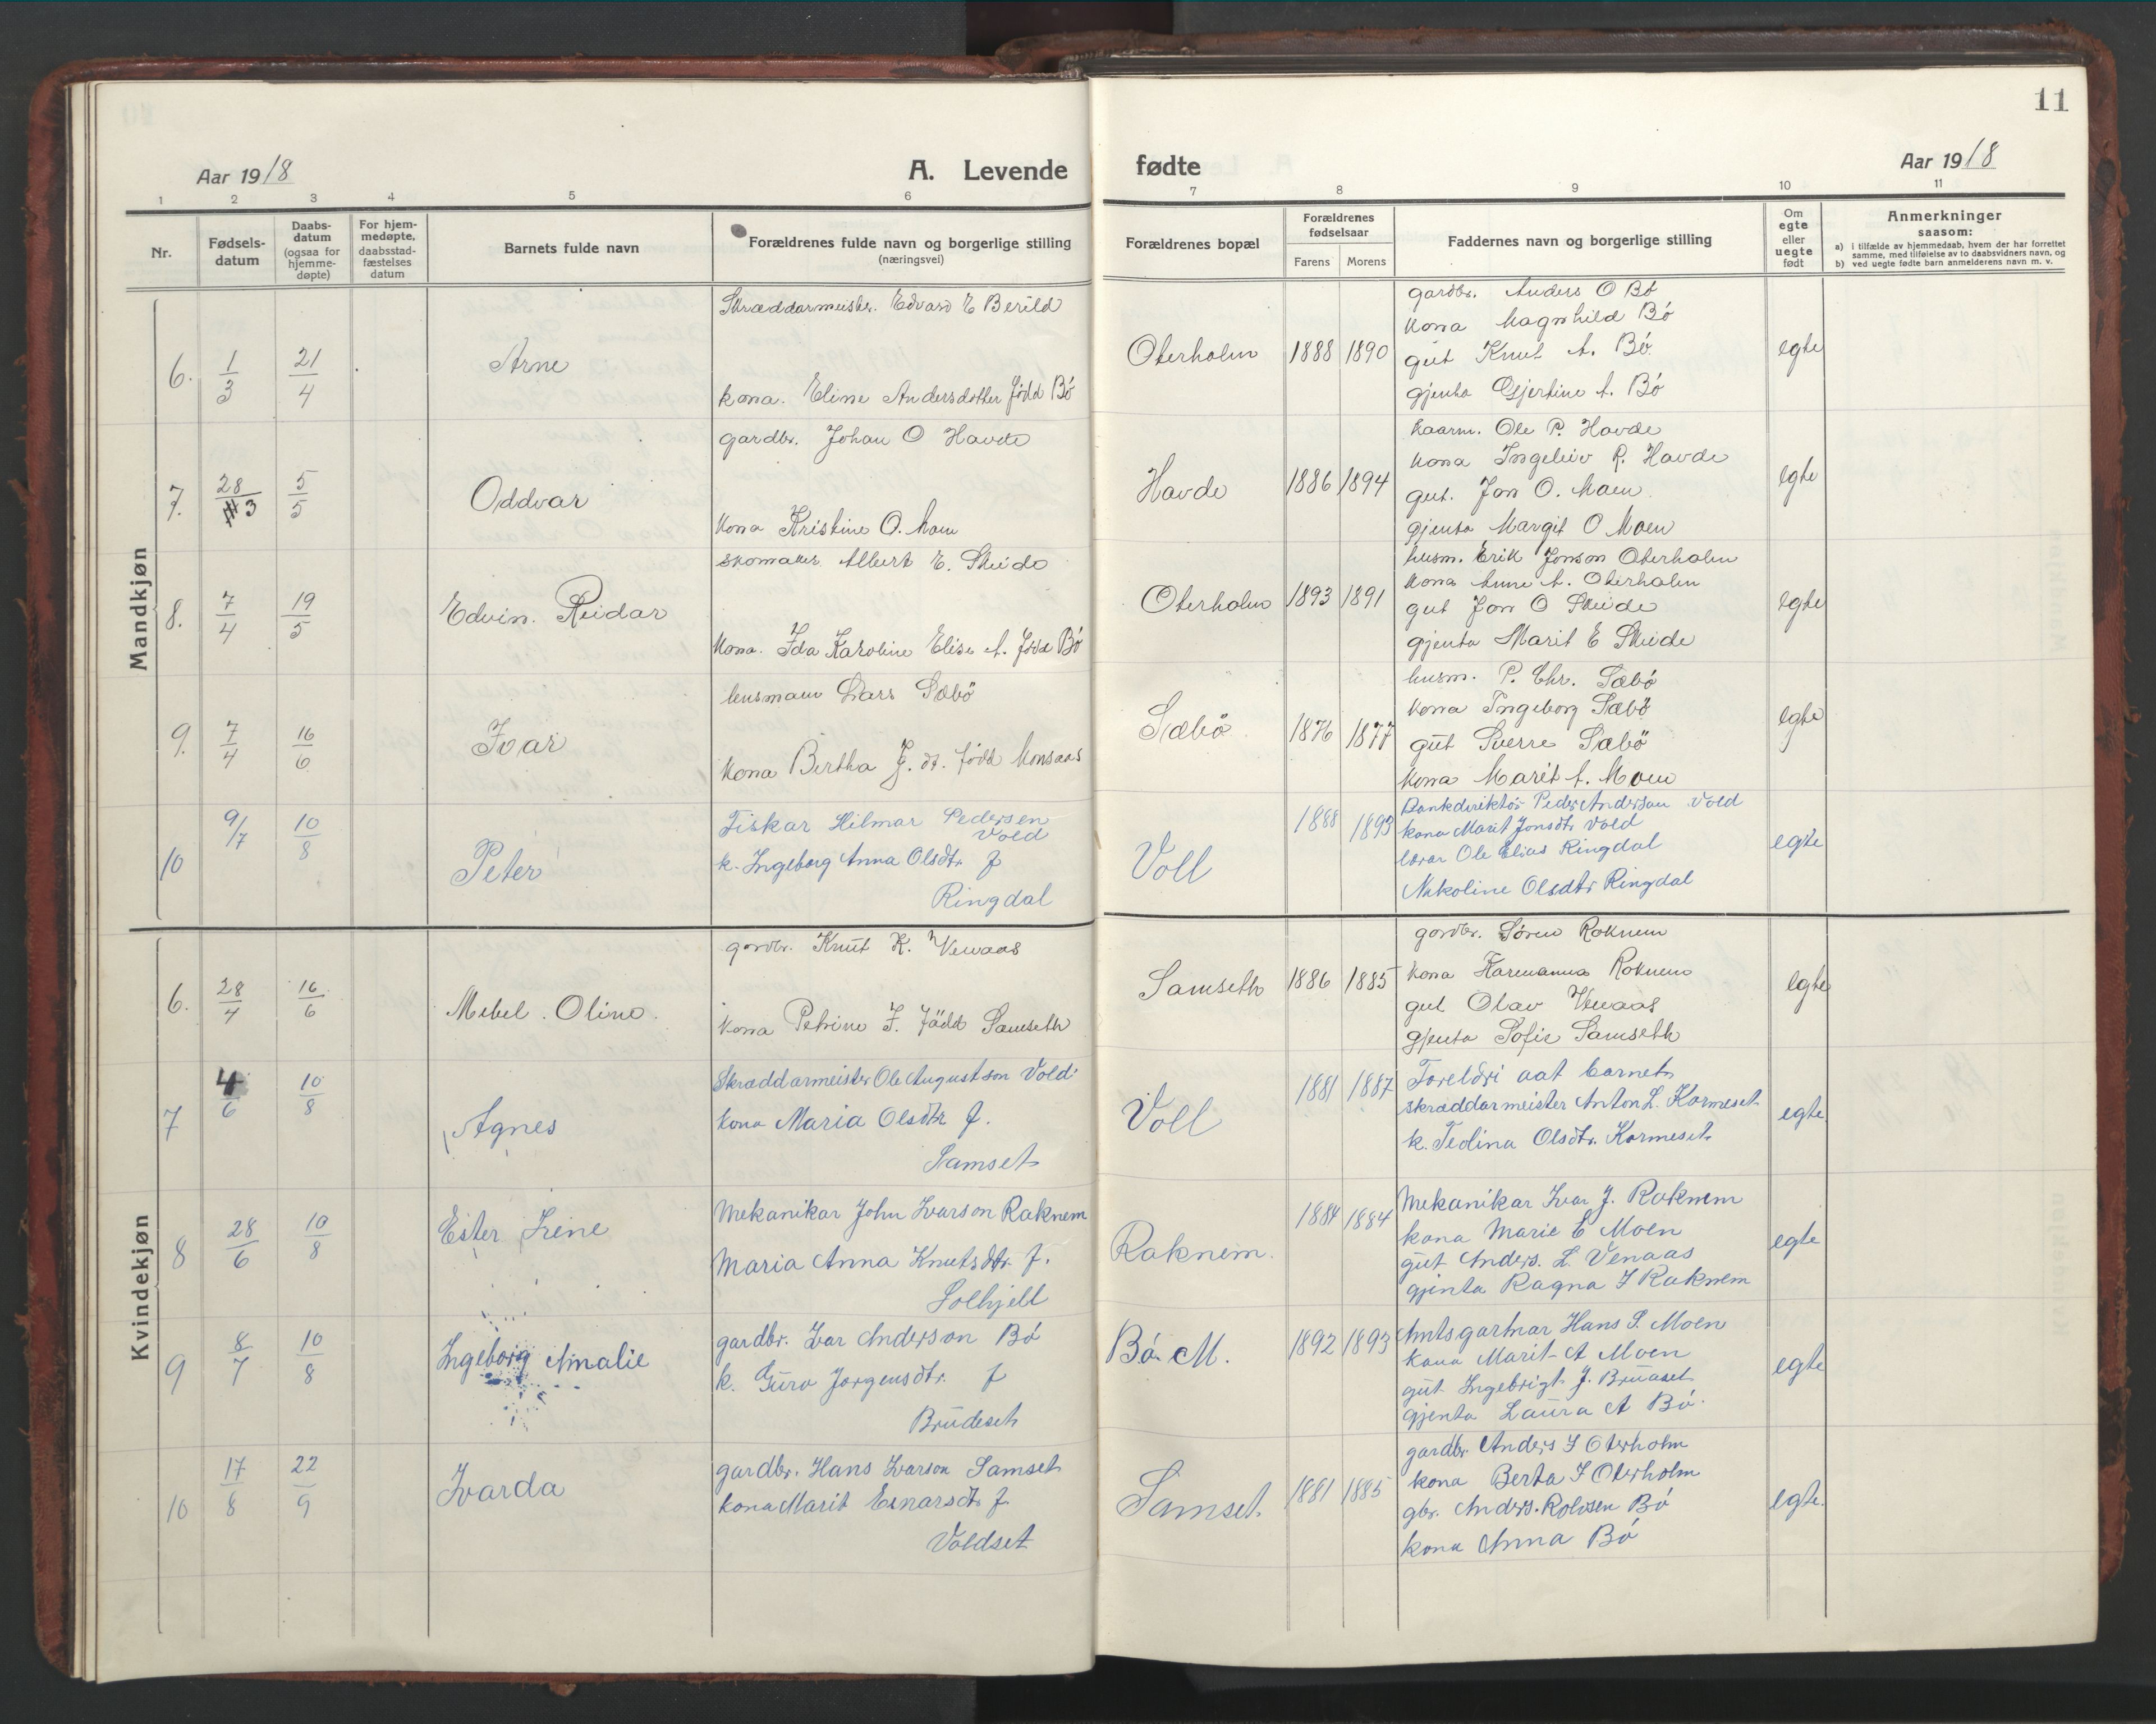 11
Aar 1918
A. Levende fødte
Aar 1918
1 2 3 4 5 6 7 8 9 10 11
Nr.
Fødsels-
datum
Daabs-
datum
(ogsaa for
hjemme-
døpte)
For hjem-
medøpte,
daabsstad-
fæstelses
datum
Barnets fulde navn
Forældrenes fulde navn og borgerlige stilling
(næringsvei)
Forældrenes bopæl
Forældrenes
fødselsaar
Farens Morens
Faddernes navn og borgerlige stilling
Om
egte
eller
uegte
født
Anmerkninger
saasom:
a) i tilfælde av hjemmedaab, hvem der har forrettet
samme, med tilføielse av to daabsvidners navn, og
b) ved uegte fødte barn anmelderens navn m. v.
Mandkjøn
6. 1/3 21/4 Arne
Skræddarmeister. Edvard E Berild
kona. Eline Andersdotter født Bö
Oterholm 1888 1890
gardbr. Anders O Bö
kona Magnhild Bö
gut Knut A. Bö
gjenta Gjertine A. Bö
egte
7. 28/3 5/5 Oddvar
gardbr. Johan O Havde
kona Kristine O. Moen
Havde 1886 1894
kaarm. Ole P. Havde
kona Ingeleiv R. Havde
gut. Jon O. Moen
gjenta Margit O Moen
egte
8. 7/4 19/5 Edvin. Reidar
skomaker Albert E. Skeide
kona. Ida Karoline Elise A. født Bö
Oterholm 1893 1891
husm. Erik Jonson Oterholm
kona Anne A. Oterholm
gut Jon O Skeide
gjenta Marit E Skeide
egte
9. 7/4 16/6 Ivar
husmann Lars Sæbö
kona Bertha J. dt. født Monsaas
Sæbö 1876 1877
husm. P. Chr. Sæbö
kona Ingeborg Sæbö
gut Sverre Sæbö
kona Marit A. Moen
egte
10 9/7 10/8 Peter
Fiskar Hilmar Pedersen
Vold
k. Ingeborg Anna Olsdtr. f
Ringdal
Voll 1888 1893
Bankdirektör Peder Anderson Vold
kona Marit Jonsdtr Vold
lærar Ole Elias Ringdal
Nikoline Olsdtr Ringdal
egte
Kvindekjøn
6. 28/4 16/6 Mebel. Oline.
gardbr. Knut K. Venaas
kona Petrine I. født Samseth
Samseth 1886 1885
gardbr. Sören Roknem
kona Karenanna Roknem
gut Olav Venaas
gjenta Sofie Samseth
egte
7 4/6 10/8 Agnes
Skræddarmeister Ole August son Vold
kona Maria Olsdtr f.
Samset
Voll 1881 1887
Foreldri aat barnet
skræddarmeister Anton L. Kormeset
k. Tedina Olsdtr. Kormeset
egte
8 28/6 10/8 Ester Irene
Mekanikar John Ivarson Raknem
Maria Anna Knutsdtr. f.
Solhjell
Raknem. 1884 1884
Mekanikar Ivar J. Raknem
kona Marie E Moen
gut Anders. L. Venaas
gjenta Ragna I Raknem
egte
9 8/7 10/8 Ingeborg Amalie
gardbr. Ivar Anderson Bö
k. Guro Jorgensdtr. f
Brudeset
Bö. M. 1892 1893
Amtsgartnar Hans S. Moen
kona Marit A Moen
gut Ingebrigt J. Bruaset
gjenta Laura A Bö.
egte
10 17/8 22/9 Ivarda
gardbr. Hans Ivarson Samset
kona Marit Esnarsdtr f.
Voldset
Samset. 1881 1885
gardbr. Anders I Oterholm
kona Berta I Oterholm
gbr. Anders. Rolvsen Bö
kona Anna Bö
egte.